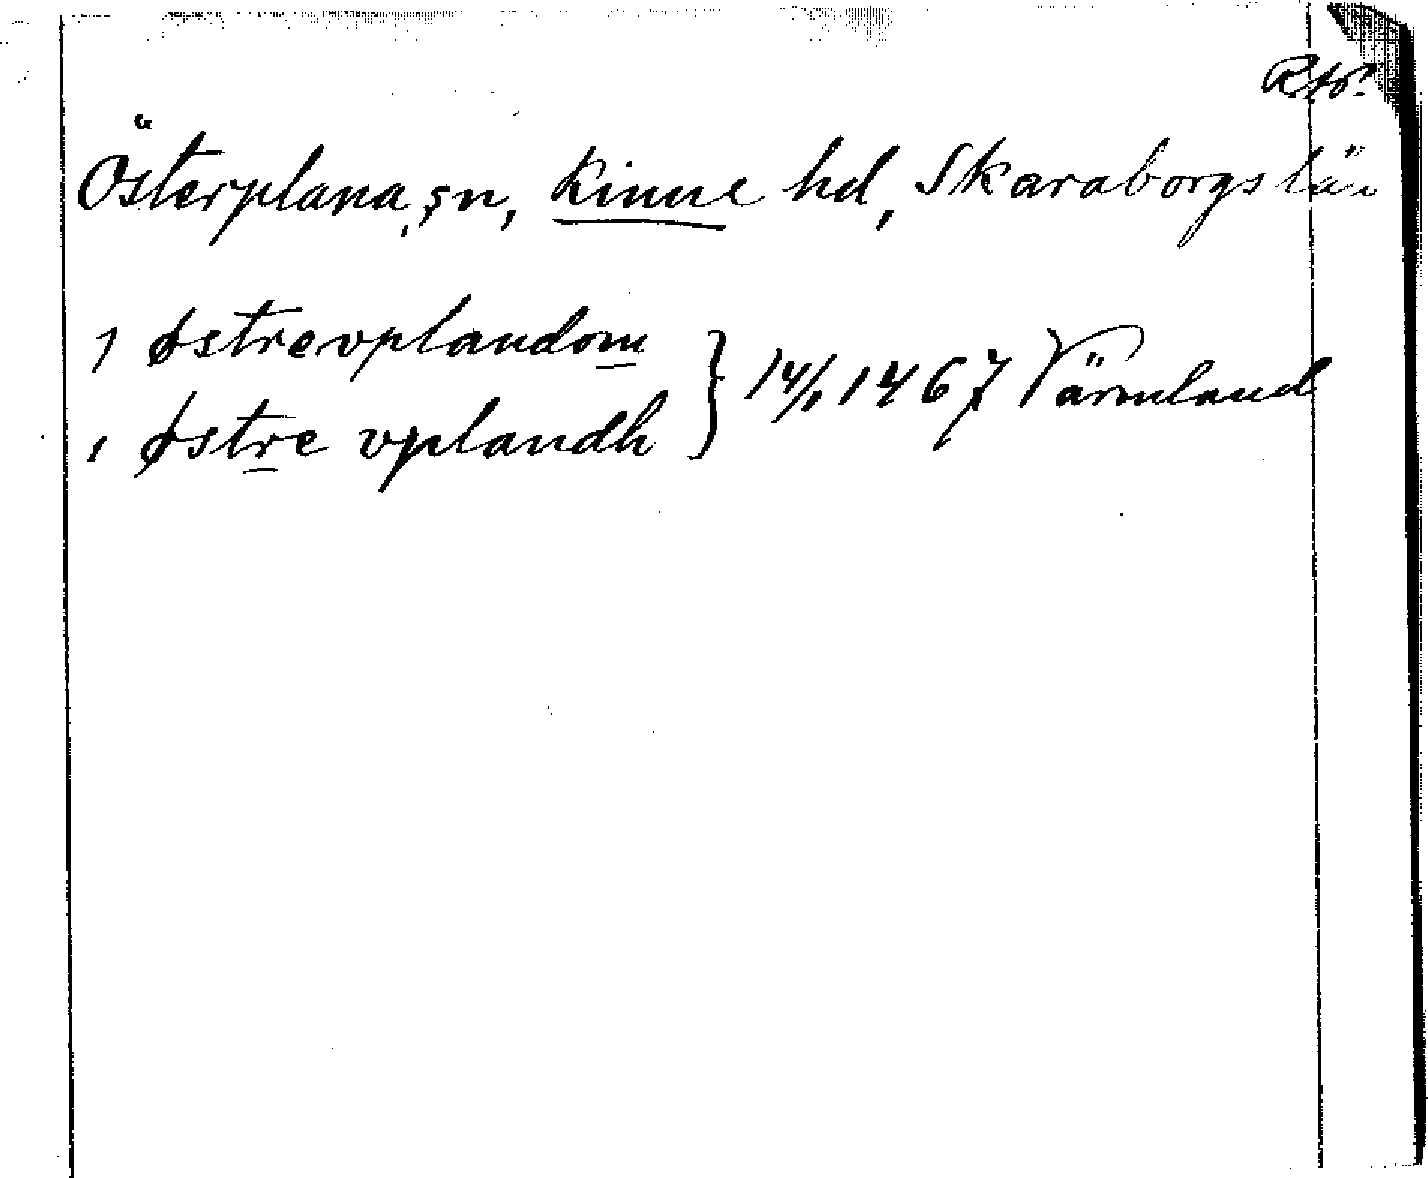 Österplana, sn, Kinne hd, Skaraborgs län
j østrevplandom
i østre vplandh } 14/1 1467 Värmland